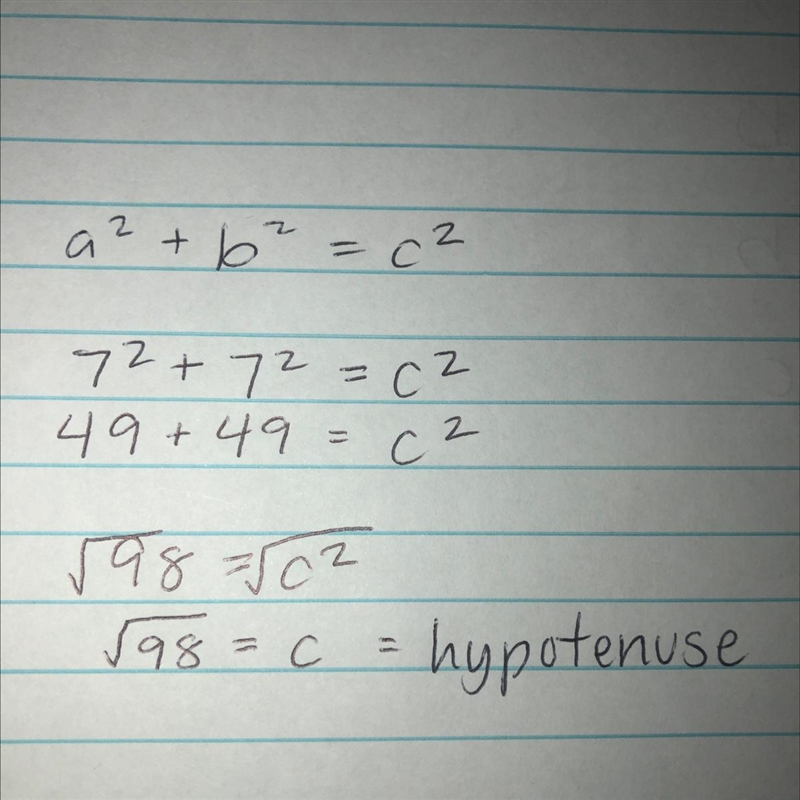 a² + b² = c²
7² + 7² = c²
49 + 49 = c²
√98 = √c²
√98 = c = hypotenuse